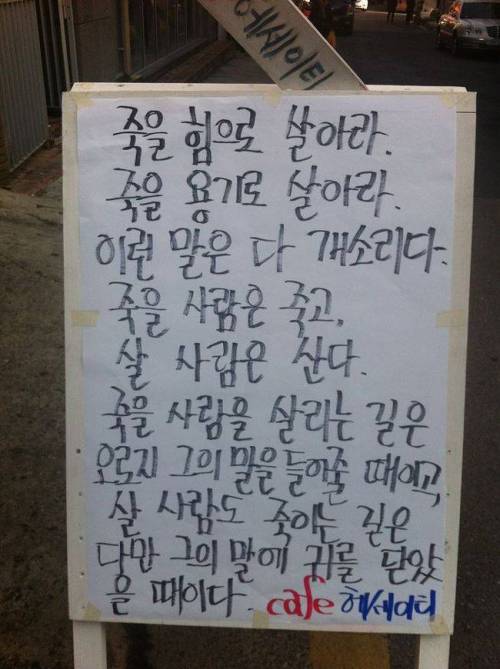 헤세이티
죽을 힘으로 살아라.
죽을 용기로 살아라.
이런 말은 다 개소리다.
죽을 사람은 죽고,
살 사람은 산다.
죽을 사람을 살리는 길은
오로지 그의 말을 들어줄 때이고
살 사람도 죽이는 길은
다만 그의 말에 귀를 닫았
을 때이다. cafe 헤세이티